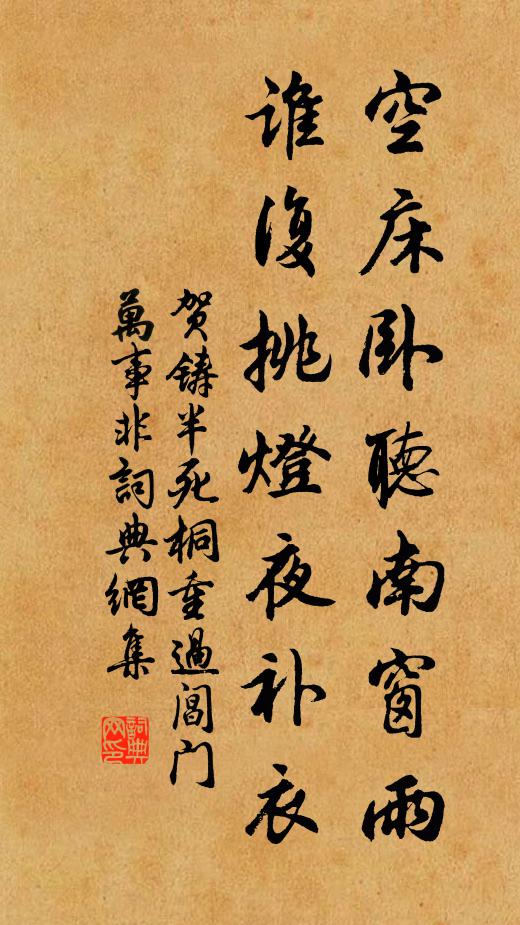 空床卧聽南窗雨
谁復挑燈夜补衣
贺鑄半死桐重過閶门
萬事非詞典網集
詞典网印